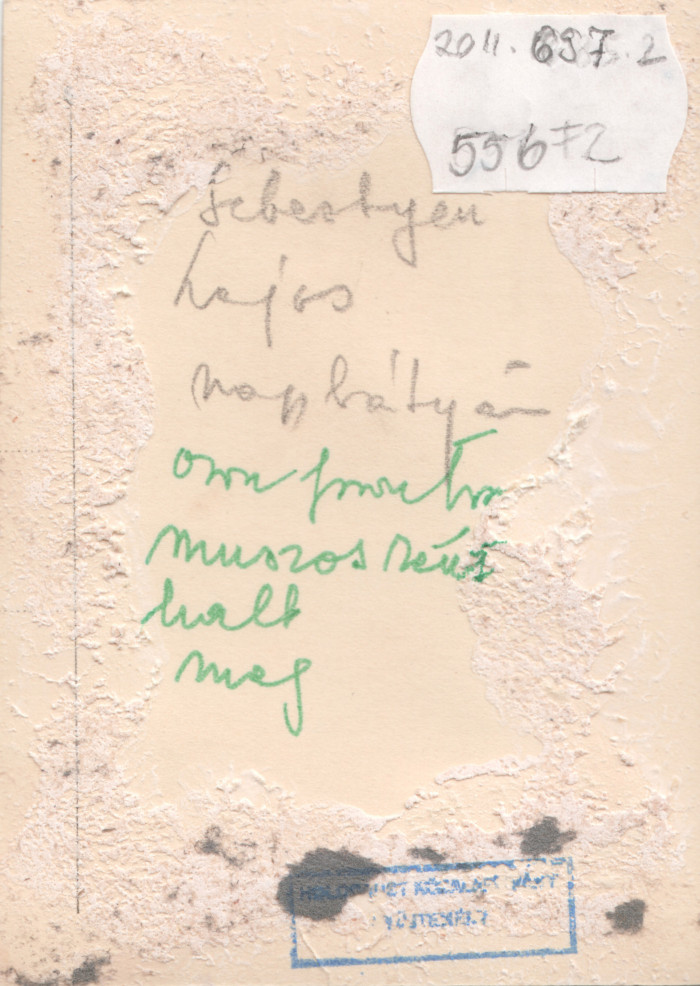 2011.697.2
55672
Sebestyén
Lajos
nagybátyám
orosz fronton
muszosként
halt
meg
HOLOCAUST KÖZALAPÍTVÁNY
GYŰJTEMÉNY